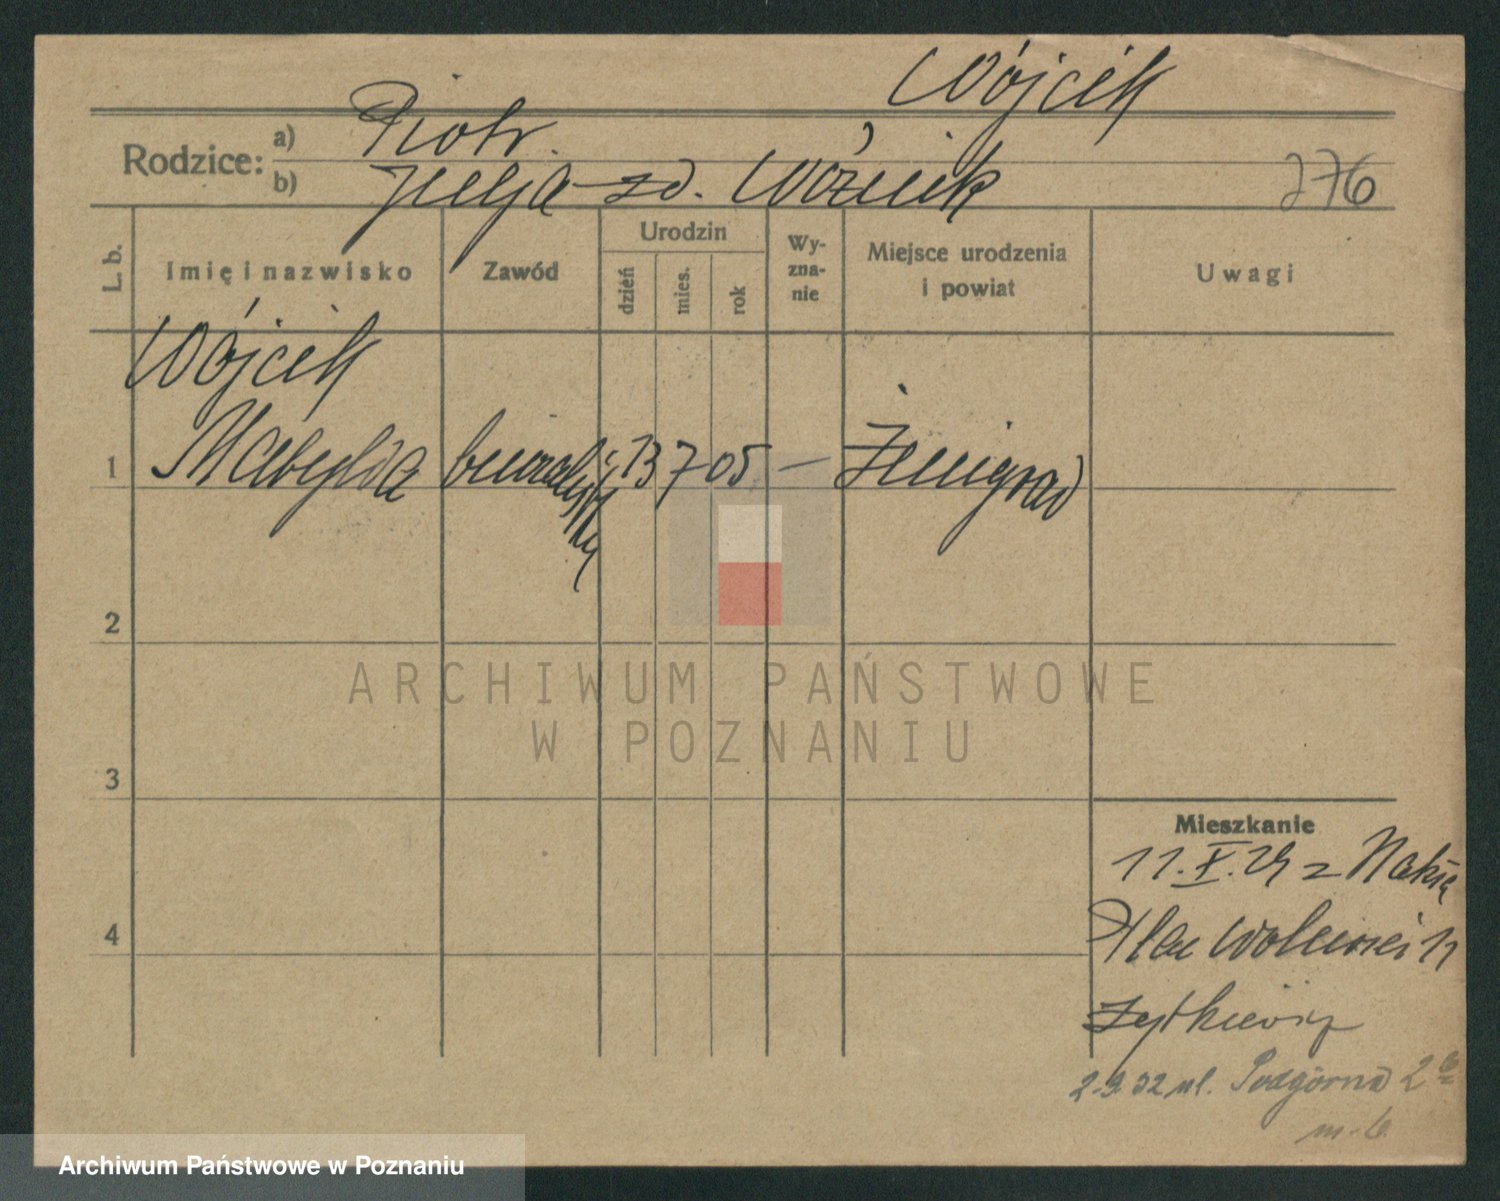 Wójcik
Rodzice: a) Piotr
b) Julja zd. Woźnik
276
L. b.
Imię i nazwisko
Zawód
Urodzin
dzień
mies.
rok
Wy-
zna-
nie
Miejsce urodzenia
i powiat
Uwagi
Wójcik
1 Matylda 13 7 05 — Żmigród
2
ARCHIWUM PAŃSTWOWE
W POZNANIU
3
Mieszkanie
11.X.29 z Nakła
4
Plac Wolności 11
Zytkiewicz
2.9.32 ul. Podgórna 2
m. 6
Archiwum Państwowe w Poznaniu